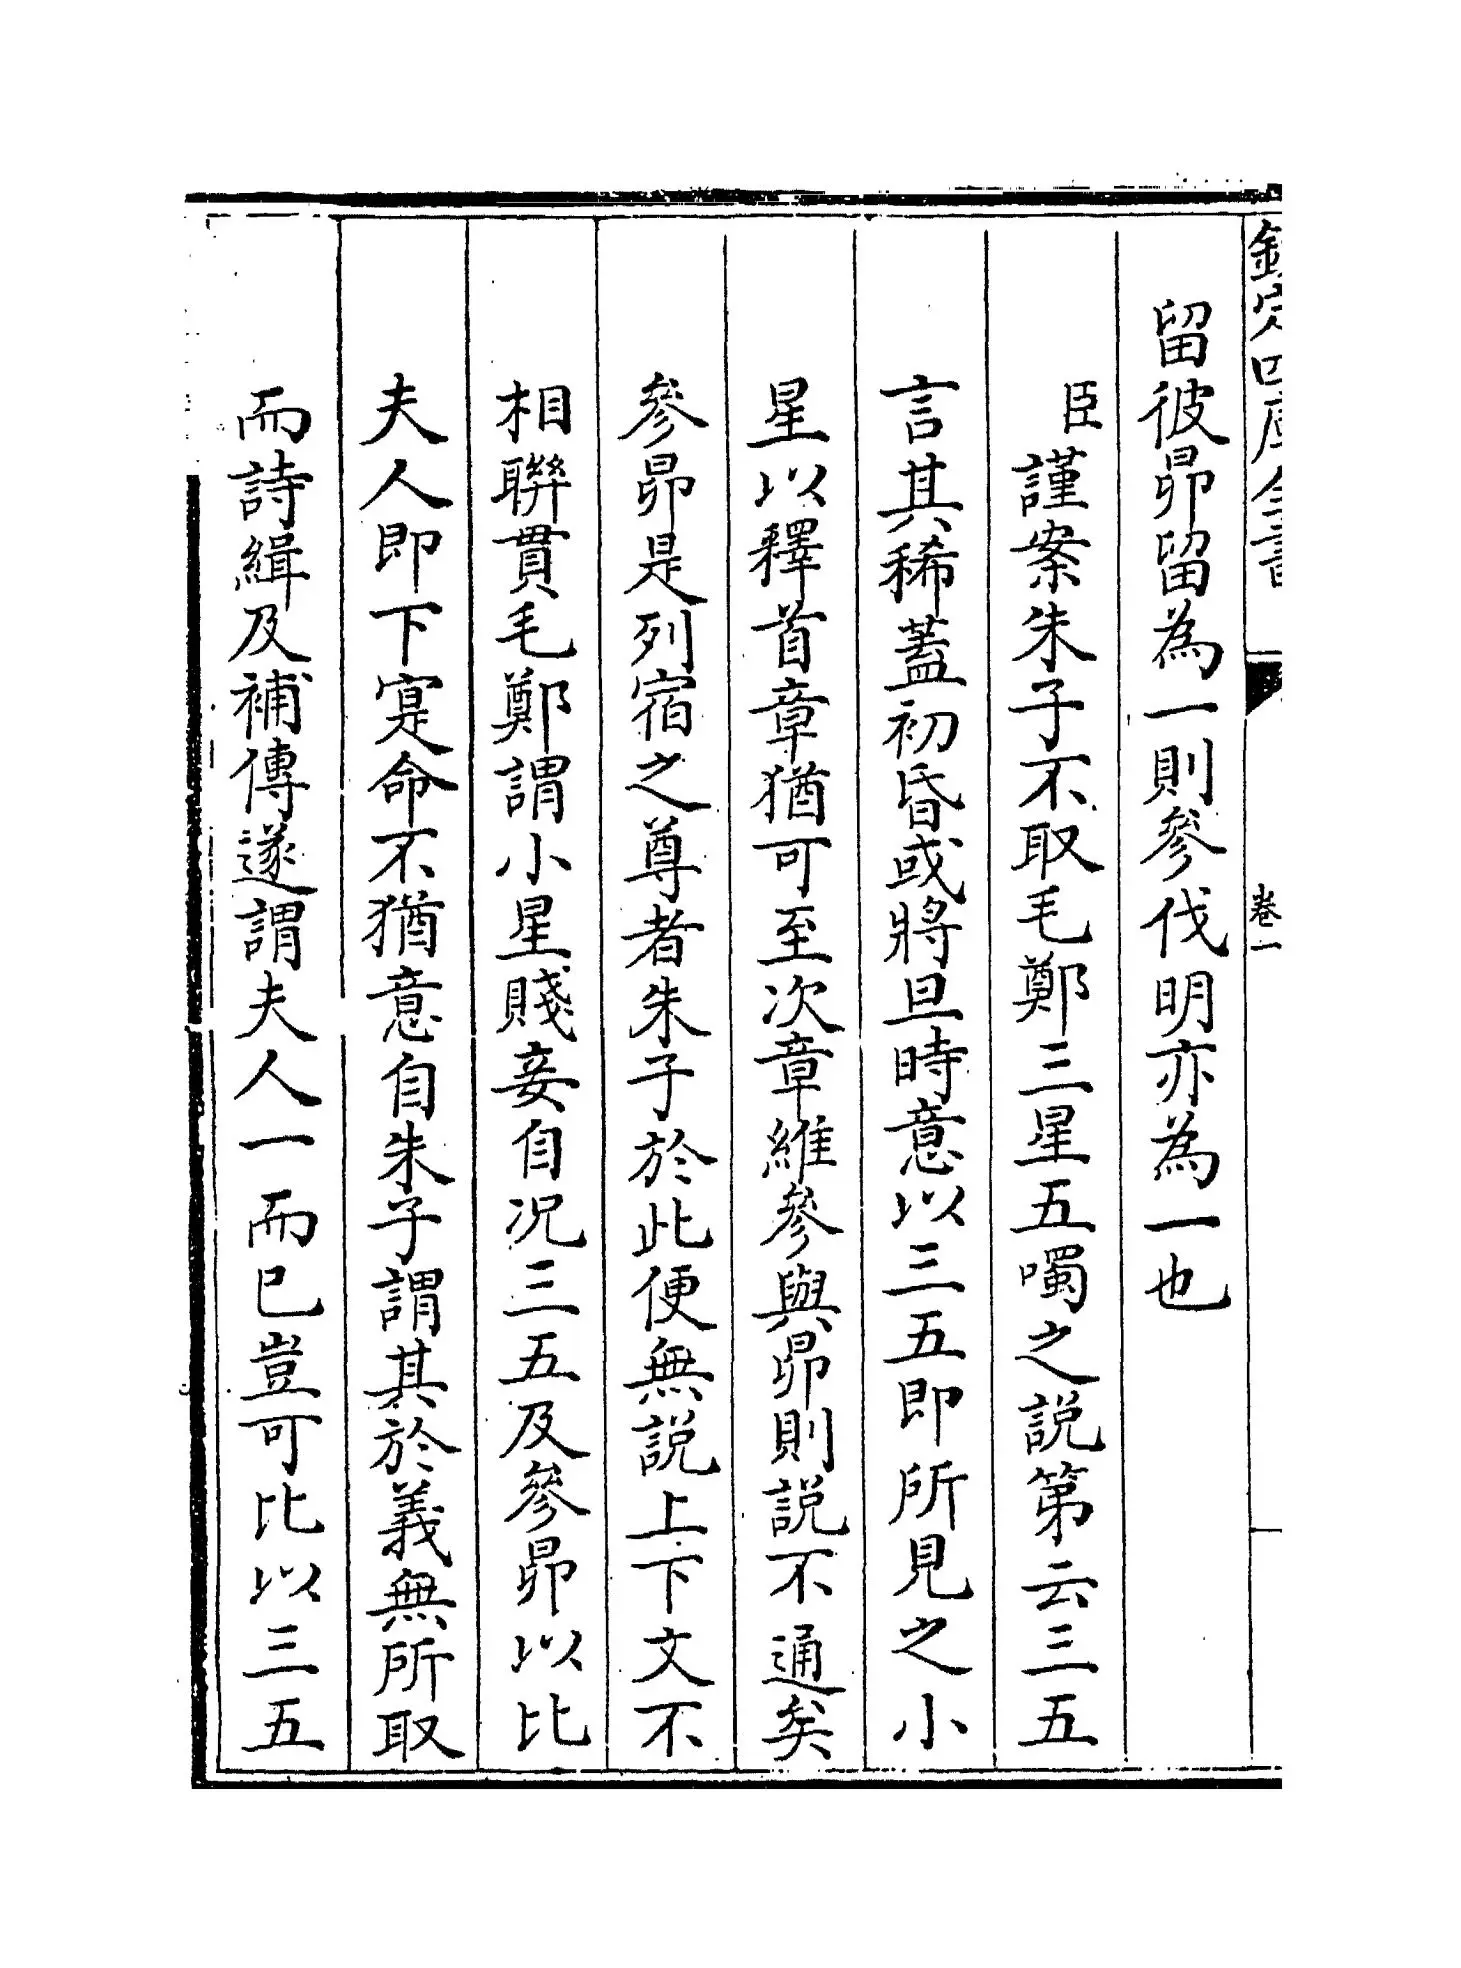 欽定四庫全書
卷一
留彼昴留為一則參伐明亦為一也
臣謹案朱子不取毛鄭三星五噣之説第云三五
言其稀蓋初昏或將旦時意以三五即所見之小
星以釋首章猶可至次章維參與昴則説不通矣
參昴是列宿之尊者朱子於此便無説上下文不
相聯貫毛鄭謂小星賤妾自况三五及參昴以比
夫人即下寔命不猶意自朱子謂其於義無所取
而詩緝及補傳遂謂夫人一而已豈可比以三五